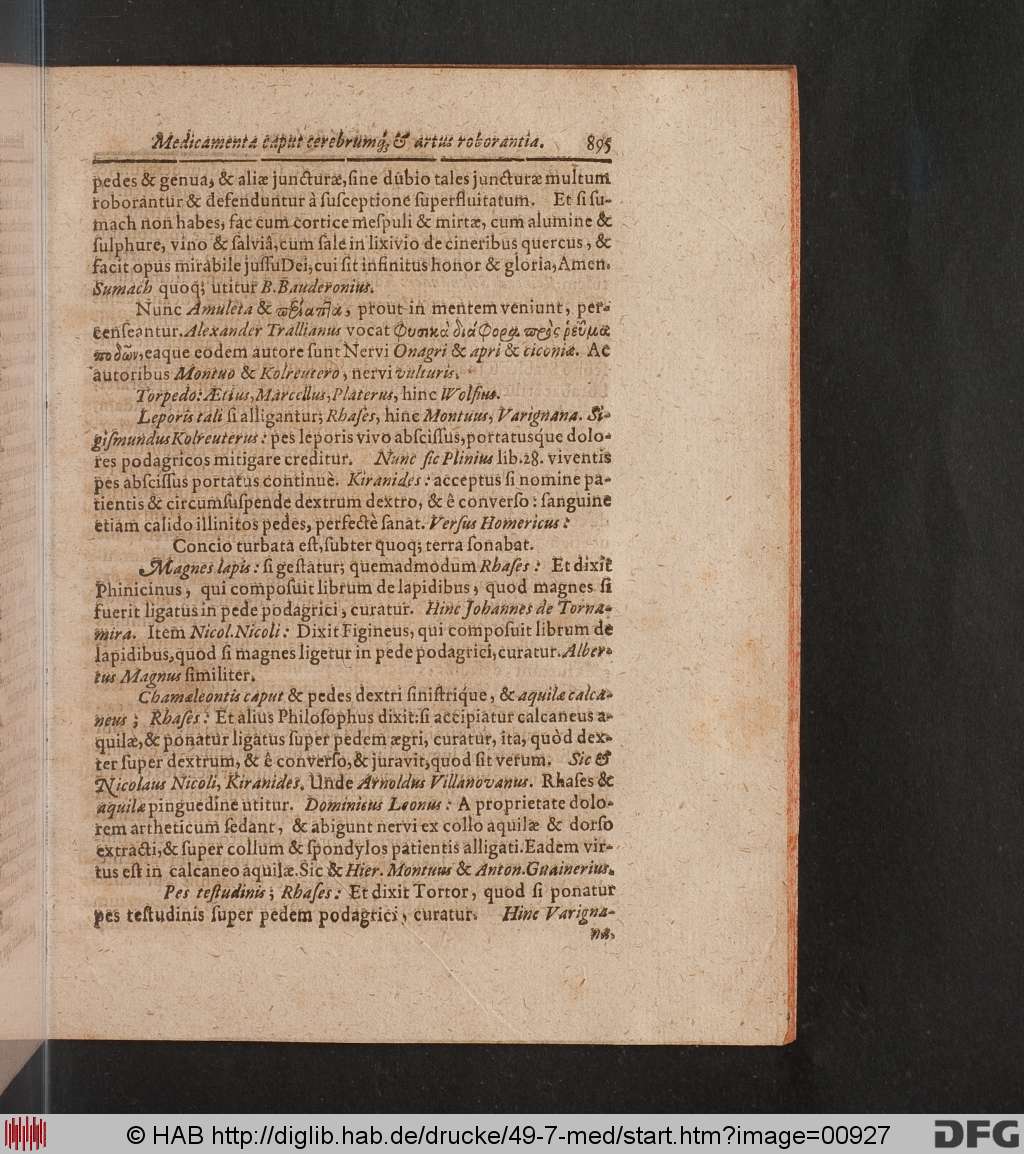 Medicamenta caput cerebrumq; & artus roborantia. 895
pedes & genua, & aliæ juncturæ, sine dubio tales juncturæ multum
roborantur & defenduntur à susceptione superfluitatum. Et si su-
mach non habes, fac cum cortice mespuli & mirtæ, cum alumine &
sulphure, vino & salviâ, cum sale in lixivio de cineribus quercus, &
facit opus mirabile jussu Dei, cui sit infinitus honor & gloria, Amen.
Sumach quoq; utitur B. Bauderonius.
Nunc Amuleta & περίαπτα, prout in mentem veniunt, per-
censeantur. Alexander Trallianus vocat Φυσικὰ διάφορα πρὸς ῥεῦμα
ποδῶν, eaque eodem autore sunt Nervi Onagri & apri & ciconiæ. Ac
autoribus Montuo & Kolreutero, nervi vulturis.
Torpedo: Ætius, Marcellus, Platerus, hinc Wolfius.
Leporis tali si alligantur; Rhases, hinc Montuus, Varignana. Si-
gismundus Kolreuterus: pes leporis vivo abscissus, portatusque dolo-
res podagricos mitigare creditur. Nunc sic Plinius lib. 28. viventis
pes abscissus portatus continuè. Kiranides: acceptus si nomine pa-
tientis & circumsuspende dextrum dextro, & ê converso: sanguine
etiam calido illinitos pedes, perfectè sanat. Versus Homericus:
Concio turbata est, subter quoq; terra sonabat.
Magnes lapis: si gestatur; quemadmodum Rhases: Et dixit
Phinicinus, qui composuit librum de lapidibus, quod magnes si
fuerit ligatus in pede podagrici, curatur. Hinc Johannes de Torna-
mira. Item Nicol. Nicoli: Dixit Figineus, qui composuit librum de
lapidibus, quod si magnes ligetur in pede podagrici, curatur. Alber-
tus Magnus similiter.
Chamæleontis caput & pedes dextri sinistrique, & aquilæ calca-
neus; Rhases: Et alius Philosophus dixit: si accipiatur calcaneus a-
quilæ, & ponatur ligatus super pedem ægri, curatur, ita, quòd dex-
ter super dextrum, & ê converso, & juravit, quod sit verum. Sic &
Nicolaus Nicoli, Kiranides. Unde Arnoldus Villanovanus. Rhases &
aquilæ pinguedine utitur. Dominicus Leonus: A proprietate dolo-
rem artheticum sedant, & abigunt nervi ex collo aquilæ & dorso
extracti, & super collum & spondylos patientis alligati. Eadem vir-
tus est in calcaneo aquilæ. Sic & Hier. Montuus & Anton. Guainerius.
Pes testudinis; Rhases: Et dixit Tortor, quod si ponatur
pes testudinis super pedem podagrici, curatur. Hinc Varigna-
na.
© HAB http://diglib.hab.de/drucke/49-7-med/start.htm?image=00927
DFG